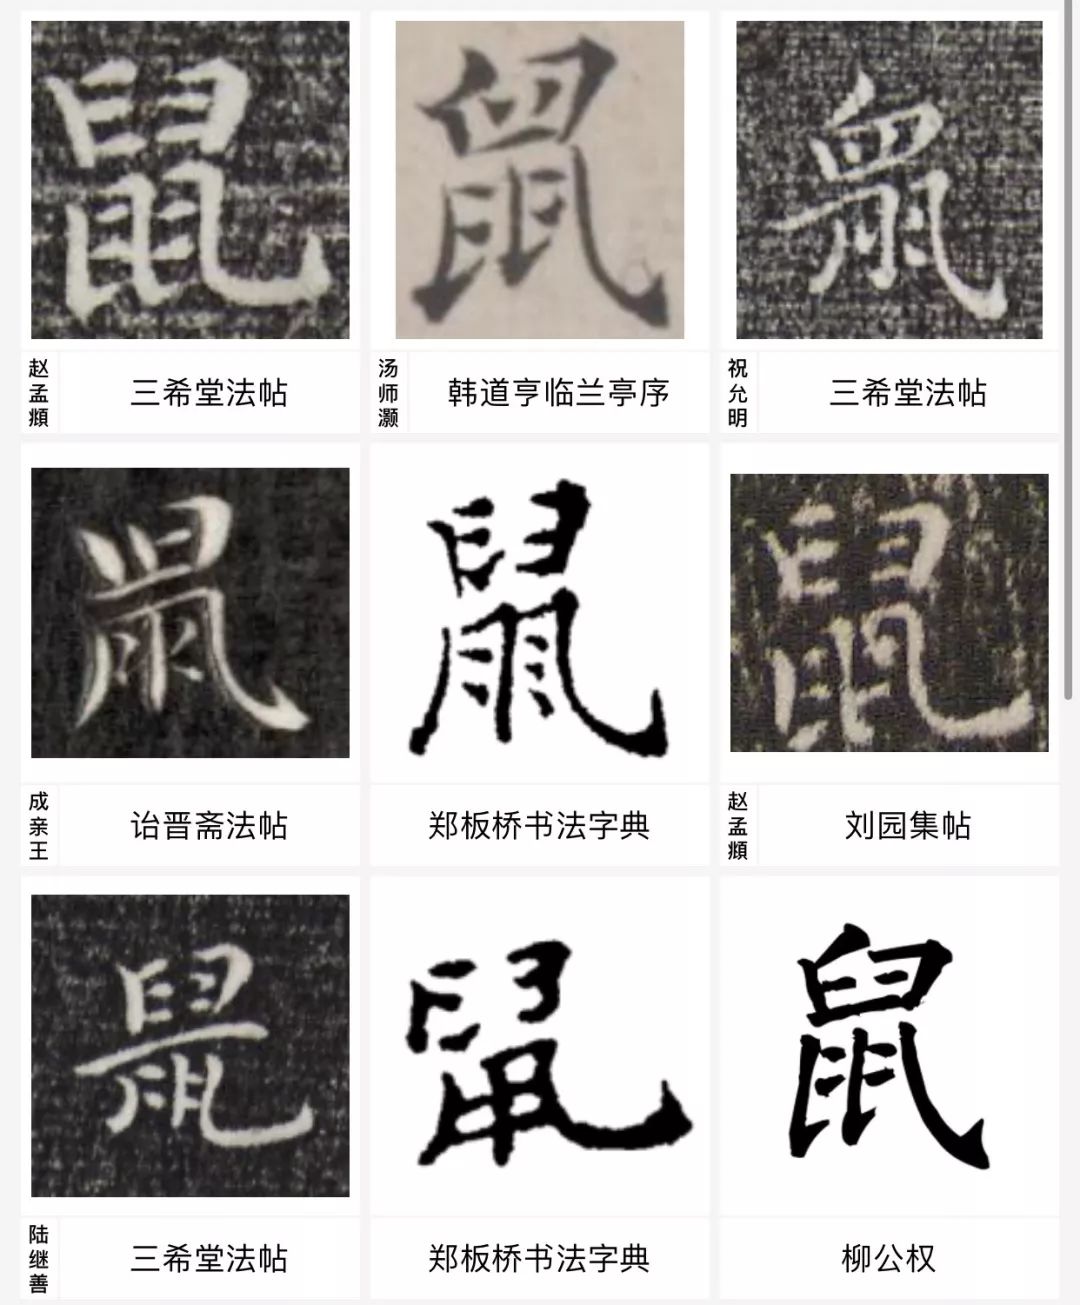 鼠
鼠
鼠
赵孟頫
三希堂法帖
汤师灏
韩道亨临兰亭序
祝允明
三希堂法帖
鼠
鼠
鼠
成亲王
诒晋斋法帖
郑板桥书法字典
赵孟頫
刘园集帖
鼠
鼠
鼠
陆继善
三希堂法帖
郑板桥书法字典
柳公权